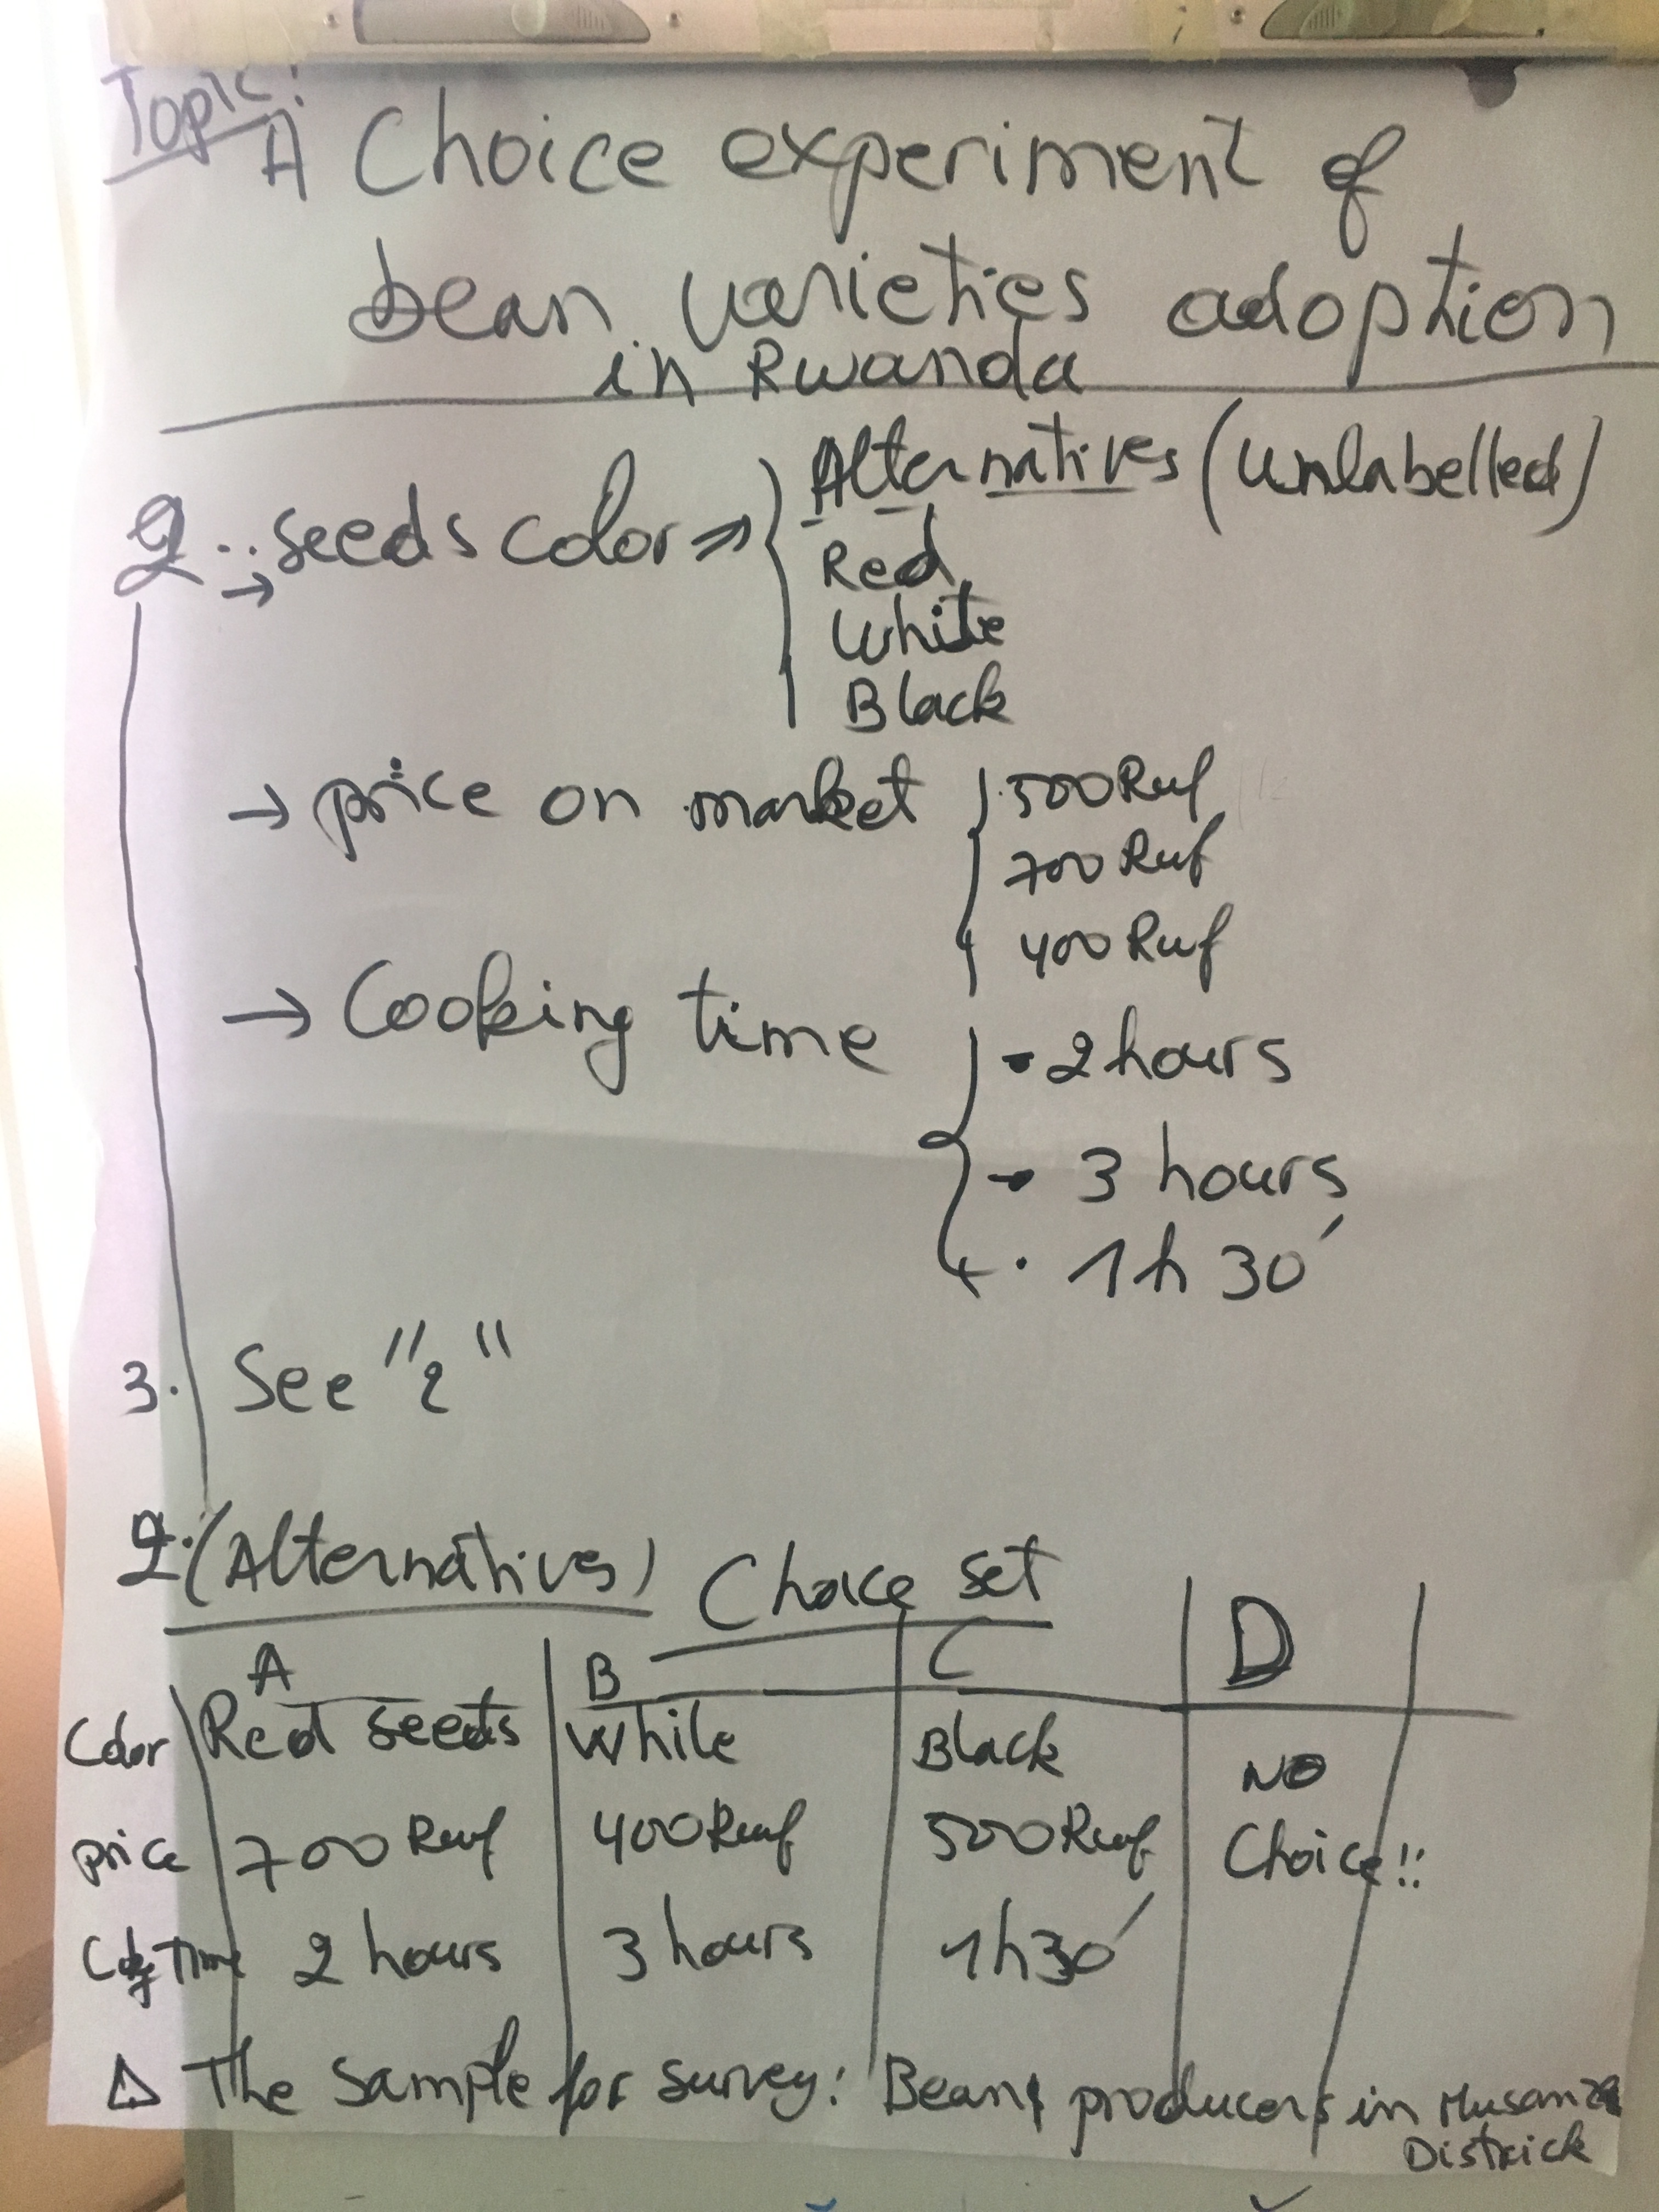 Topic:
A Choice experiment of
bean varieties adoption
in Rwanda
Alternatives (unlabelled)
2. → seeds color ⇒
Red
White
Black
→ price on market
500 Rwf
700 Rwf
400 Rwf
→ Cooking time
- 2 hours
- 3 hours
. 1h 30'
3. See "2"
2. (Alternatives) Choice set
A B C D
Color Red seeds White Black NO
price 700 Rwf 400 Rwf 500 Rwf Choice!!
Time 2 hours 3 hours 1h30'
The sample for survey: Beans producers in Musanze
Districk